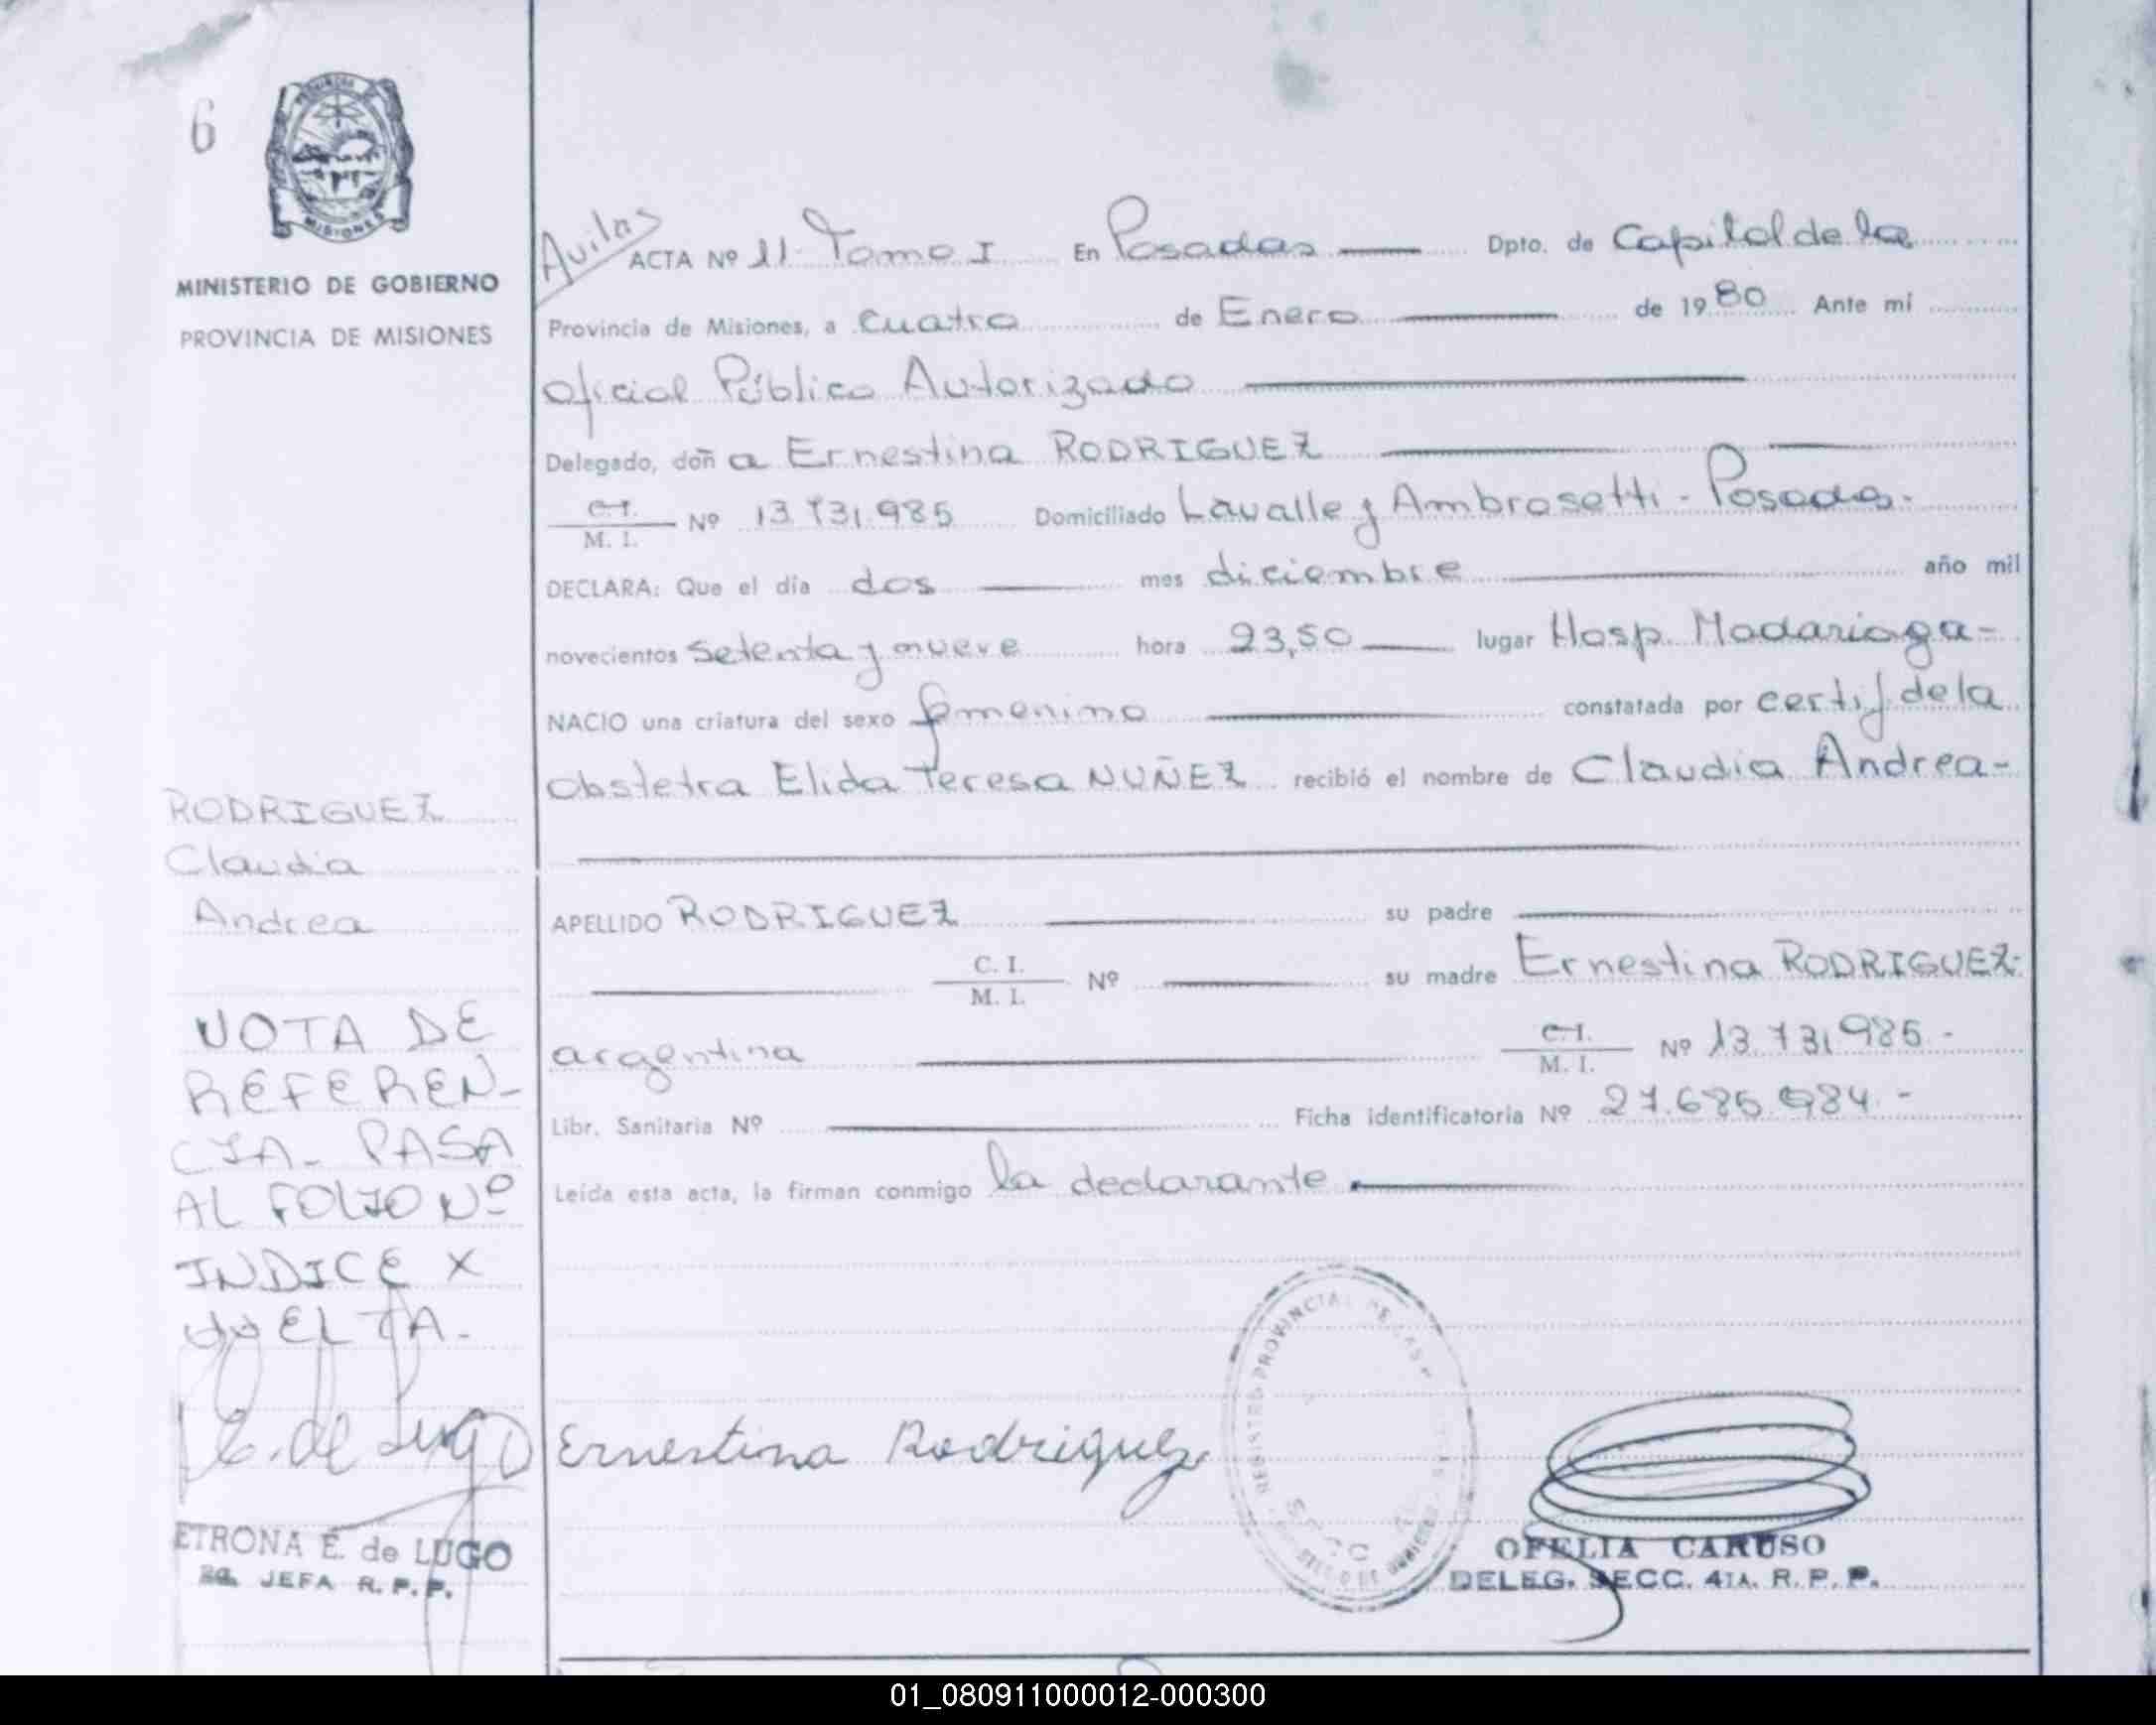 6
PROVINCIA DE
MISIONES
MINISTERIO DE GOBIERNO
PROVINCIA DE MISIONES
RODRIGUEZ
Claudia
Andrea
NOTA DE
REFEREN-
CIA - PASA
AL FOLIO Nº
INDICE X
VUELTA.
E. de Lugo
ETRONA E. de LUGO
JEFA R. P. P.
Avilas
ACTA Nº 11 Tomo I En Posadas Dpto. de Capital de la
Provincia de Misiones, a cuatro de Enero de 1980 Ante mi
Oficial Público Autorizado
Delegado, doña Ernestina RODRIGUEZ
C.I.
M. I. Nº 13.731.985 Domiciliado Lavalle y Ambrosetti - Posadas.
DECLARA: Que el día dos mes diciembre año mil
novecientos setenta y nueve hora 23,50 lugar Hosp. Madariaga-
NACIO una criatura del sexo femenino constatada por certif de la
Obstetra Elida Teresa NUÑEZ recibió el nombre de Claudia Andrea-
APELLIDO RODRIGUEZ su padre
C. I.
M. I. Nº su madre Ernestina RODRIGUEZ-
argentina C.I.
M. I. Nº 13.731.985.-
Libr. Sanitaria Nº Ficha identificatoria Nº 27.685.984.-
Leída esta acta, la firman conmigo la declarante
Ernestina Rodriguez
REGISTRO PROVINCIAL DE LAS P
SECC
OFELIA CARUSO
DELEG. SECC. 4TA. R. P. P.
01_080911000012-000300